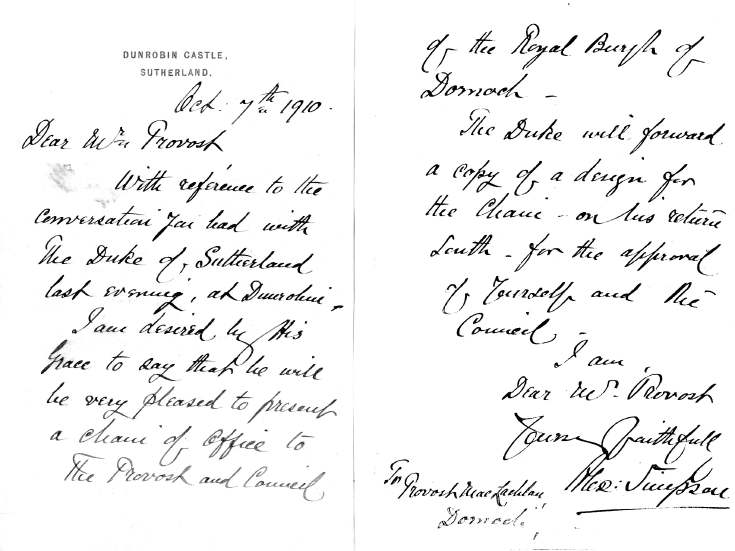 DUNROBIN CASTLE,
SUTHERLAND.
Oct. 7th 1910.
Dear Mr. Provost
With reference to the
conversation you had with
The Duke of Sutherland
last evening, at Dunrobin,
I am desired by His
Grace to say that he will
be very pleased to present
a chain of office to
The Provost and Council
of the Royal Burgh of
Dornoch -
The Duke will forward
a copy of a design for
the Chain - on his return
South - for the approval
of Yourself and the
Council -
I am,
Dear Mr. Provost
Yours Faithfull
Alex: Simpson
To Provost MacLachlan,
Dornoch,